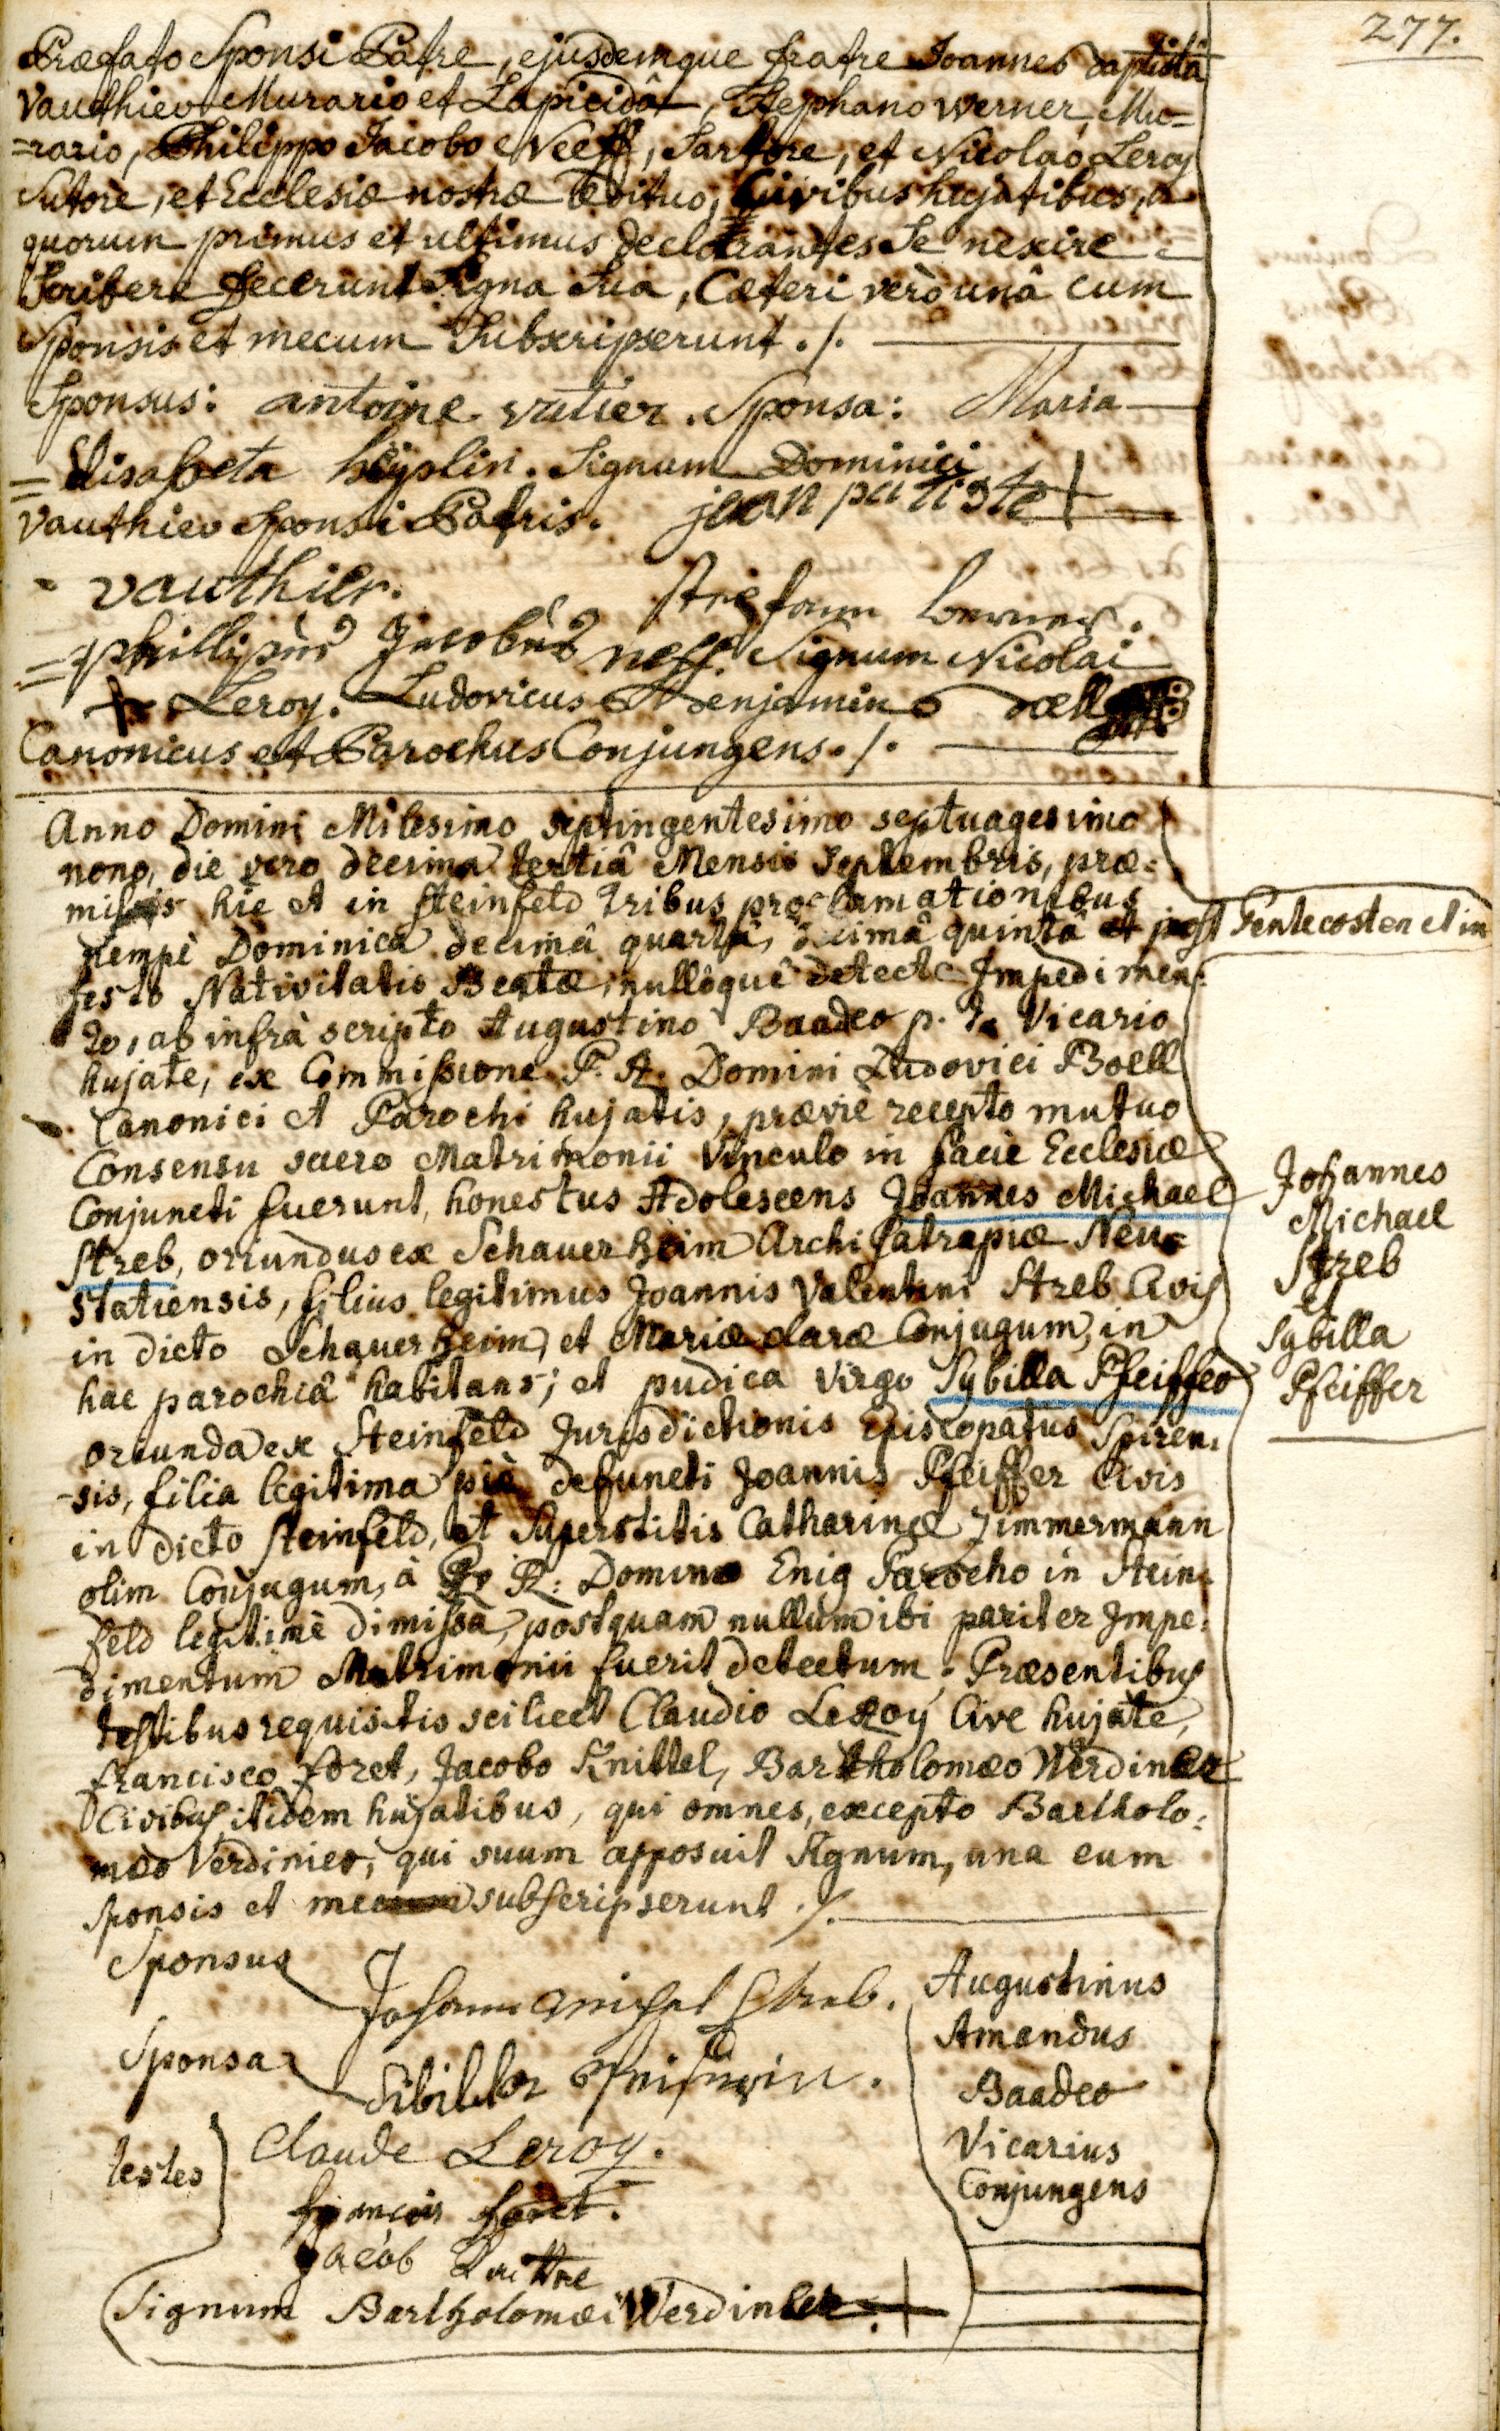 277.
Præfato Sponsi Patre, ejusdemque fratre Joannes Baptistâ
Vauthier Murario et Lapicidâ, Stephano Werner, Mu=
=rario, Philippo Jacobo Neeff, Sartore, et Nicolao Leroy
Sutore, et Ecclesiæ nostræ Ædituo, Civibus hujatibus, a
quorum primus et ultimus declarantes Se nescire =
Scribere fecerunt Signa Sua, Cæteri verò unâ cum
Sponsis et mecum Subscripserunt ./.
Sponsus: antoine vutier. Sponsa: Maria
= Elisabeta heyslin. Signum Dominici +
Vauthier Sponsi Patris. jean patiste
vauthier. Stefann berner.
= phillipus Jacobus neff. Signum Nicolai
+ Leroy. Ludovicus Benjamin Boell
Canonicus et Parochus Conjungens ./.
Anno Domini Milesimo septingentesimo septuagesimo
nono, die vero decima tertiâ Mensis Septembris, præ=
missis hic et in Steinfeld tribus proclamationibus
nempè Dominica decimâ quartâ, decimâ quintâ post Pentecosten et in
festo Nativitatis Beatæ, nullôquê detecto Impedimen=
to, ab infrà scripto Augustino Baader p. t. Vicario
hujate, ex Commissione P. R. Domini Ludovici Boell
Canonici et Parochi hujatis, prævie recepto mutuo
Consensu sacro Matrimonii Vinculo in facie Ecclesiæ
Conjuncti fuerunt, honestus Adolescens Joannes Michael
Streb, oriundus ex Schauerheim Archi Satrapiæ Neu=
statiensis, filius legitimus Joannis Valentini Streb Civis
in dicto Schauerheim, et Mariæ claræ Conjugum, in
hac parochiâ habitans; et pudica Virgo Sybilla Pfeiffer
oriunda ex Steinfeld Jurisdictionis Episcopatus Spiren=
-sis, filia legitima piè defuncti Joannis Pfeiffer Civis
in dicto Steinfeld, et Superstitis Catharinæ Zimmermann
olim Conjugum, à P. R: Domino Enig Parocho in Stein=
feld legitimè dimissa, postquam nullum ibi pariter Impe=
dimentum Matrimonii fuerit detectum. Præsentibus
testibus requisitis scilicet Claudio Leroÿ Cive hujate,
francisco foret, Jacobo Knittel, Bartholomæo Werdinler
Civibus itidem hujatibus, qui omnes, excepto Bartholo=
mæo Verdinier, qui suum apposuit Signum, una cum
Sponsis et mecum subscripserunt ./.
Johannes
Michael
Streb
et
Sybilla
Pfeiffer
Sponsus Johann Michel Streb.
Sponsa Sibilla Pfeifferin.
testes Claude Leroy.
françois foret.
Jacob
Signum Bartholomæi Werdinler +
Augustinus
Amandus
Baader
Vicarius
Conjungens